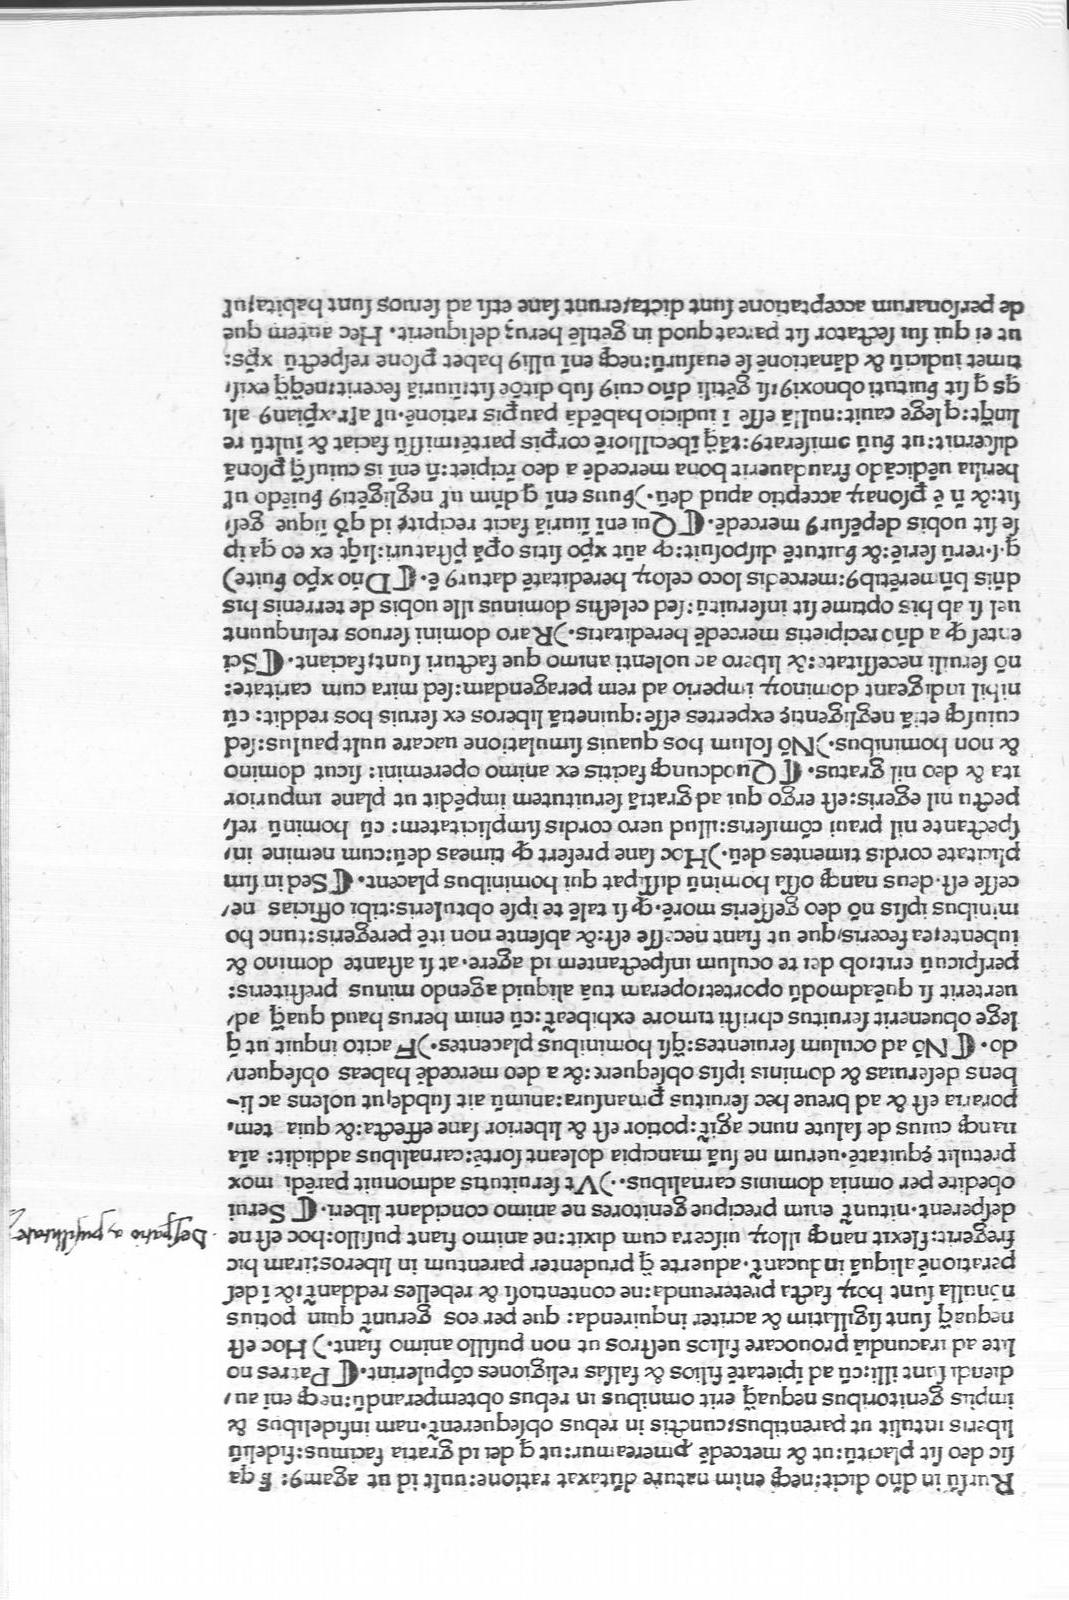 Rursū in dño dicit:neqȝ enim nature dūtaxat ratione:uult id ut agamꝰ: sꝫ qa
sic deo sit placitū:ut & mercedē ꝓmereamur:ut q̄ dei id gratia facimus:fideliū
liberis intulit ut parentibus;cunctis in rebus obsequerent̄·nam infidelibus &
impiis genitoribus nequaq̄ erit omnibus in rebus obtemperandū:neqȝ eni au/
diendi sunt illi:cū ad īpietatē filios & falsas religiones cōpulerint·⸿Patres no
lite ad iracundiā prouocare filios uestros ut non pusillo animo fiant·) Hoc est
nequaq̄ sunt sigillatim & acriter inquirenda: que per eos gerunt̄ quin potius
nonulla sunt hoꝝ facta pretereunda:ne contentiosi & rebelles reddant̄:& ī des
perationē aliquā inducant̄·aduerte q̄ prudenter parentum in liberos:iram hic
fregerit:flexit nanqȝ illoꝝ uiscera cum dixit:ne animo fiant pusillo:hoc est ne
desperent·nitunt̄ enim precipue genitores ne animo concidant liberi·⸿Serui
obedite per omnia dominis carnalibus··)Vt seruitutis admonuit parēdi mox
pretulit ęquitatē·uerum ne suā mancipia doleant sortē:carnalibus addidit: aīa
nanqȝ cuius de salute nunc agit̄:potior est & liberior sane effecta:& quia tem/
poraria est & ad breue hec seruitus ꝑmansura:animū ait subde,ut uolens ac li-
bens deseruias & dominis ipsis obsequere:& a deo mercedē habeas obsequen/
do·⸿Nō ad oculum seruientes:q̄si hominibus placentes·)Facito inquit ut q̄
lege obuenerit seruitus christi timore exhibeat̄:cū enim herus haud quaq̄ ad/
uerterit si quēadmodū oportet:operam tuā aliquid agendo minus prestiteris:
perspicuū erit:ob dei te oculum inspectantem id agere·at si astante domino &
iubente,ea feceris,que ut fiant necesse est:& absente non itē peregeris:tunc ho
minibus ipsis nō deo gesseris morē·qȝ si talē te ipse obtuleris:tibi officias ne/
cesse est·deus nanqȝ ossa hominū dissipat qui hominibus placent·⸿Sed in sim
plicitate cordis timentes deū·)Hoc sane prefert qȝ timeas deū:cum nemine in/
spectante nil praui cōmiseris:illud uero cordis simplicitatem: cū hominū res/
pectu nil egeris:est ergo qui ad gratiā seruitutem impēdit ut plane impurior
ita & deo nil gratus·⸿Quodcunqȝ facitis ex animo operemini: sicut domino
& non hominibus·)Nō solum hos quauis simulatione uacare uult paulus:sed
cuiusqȝ etiā negligentię expertes esse:quinetiā liberos ex seruis hos reddit: cū
nihil indigeant dominoꝝ imperio ad rem peragendam:sed mira cum caritate:
nō seruili necessitate:& libero ac uolenti animo que facturi sunt;faciant·⸿Sci
entes qȝ a dño recipietis mercedē hereditatis·)Raro domini seruos relinquunt
uel si ab his optime sit inseruitū:sed celestis dominus ille uobis de terrenis his
dñis bñ merētibꝰ:mercedis loco celoꝝ hereditatē daturꝰ ē·⸿Dño xp̄o ꝫuite)
q·s·rerū seriē:& ꝫuitutē disposuit:qȝ aūt xp̄o sitis oꝑā p̄staturi:liq̄t ex eo qa ip
se sit uobis depēsurꝰ mercedē·⸿Qui eni iniuriā facit recipiet id qď iique ges/
sit:& ñ ē ꝑsonaꝝ acceptio apud deū·)ꝫuus eni q̄ dñm ul' negligētiꝰ ꝫuiēdo ul'
herilia uēdicādo fraudauerit bona mercedē a deo rcipiet:ñ eni is cuiusq̄ ꝑsonā
discernit:ut ꝫuū cōmiseratꝰ:tāq̄ ībecilliorē corꝑis partē:imissū faciat & iultū re
linq̄t:q̄ lege cauit:nullā esse ī iudicio habēdā pauꝑis rationē·ul' asr·xp̄ianꝰ ali
q̄s q̄ sit ꝫuituti obnoxiꝰ:si gētili dño cuiꝰ sub ditōe sit:iiuriā fecerit:neq̄q̄ exis/
timet iudiciū & dānationē se euasurū:neqȝ eni ulliꝰ habet ꝑsone respectū xp̄s:
ut ei qui sui sectator sit parcat quod in gētile herūȝ deliquerit· Hec autem que
de personarum acceptatione sunt dicta,erunt sane etsi ad seruos sunt habita,ul'